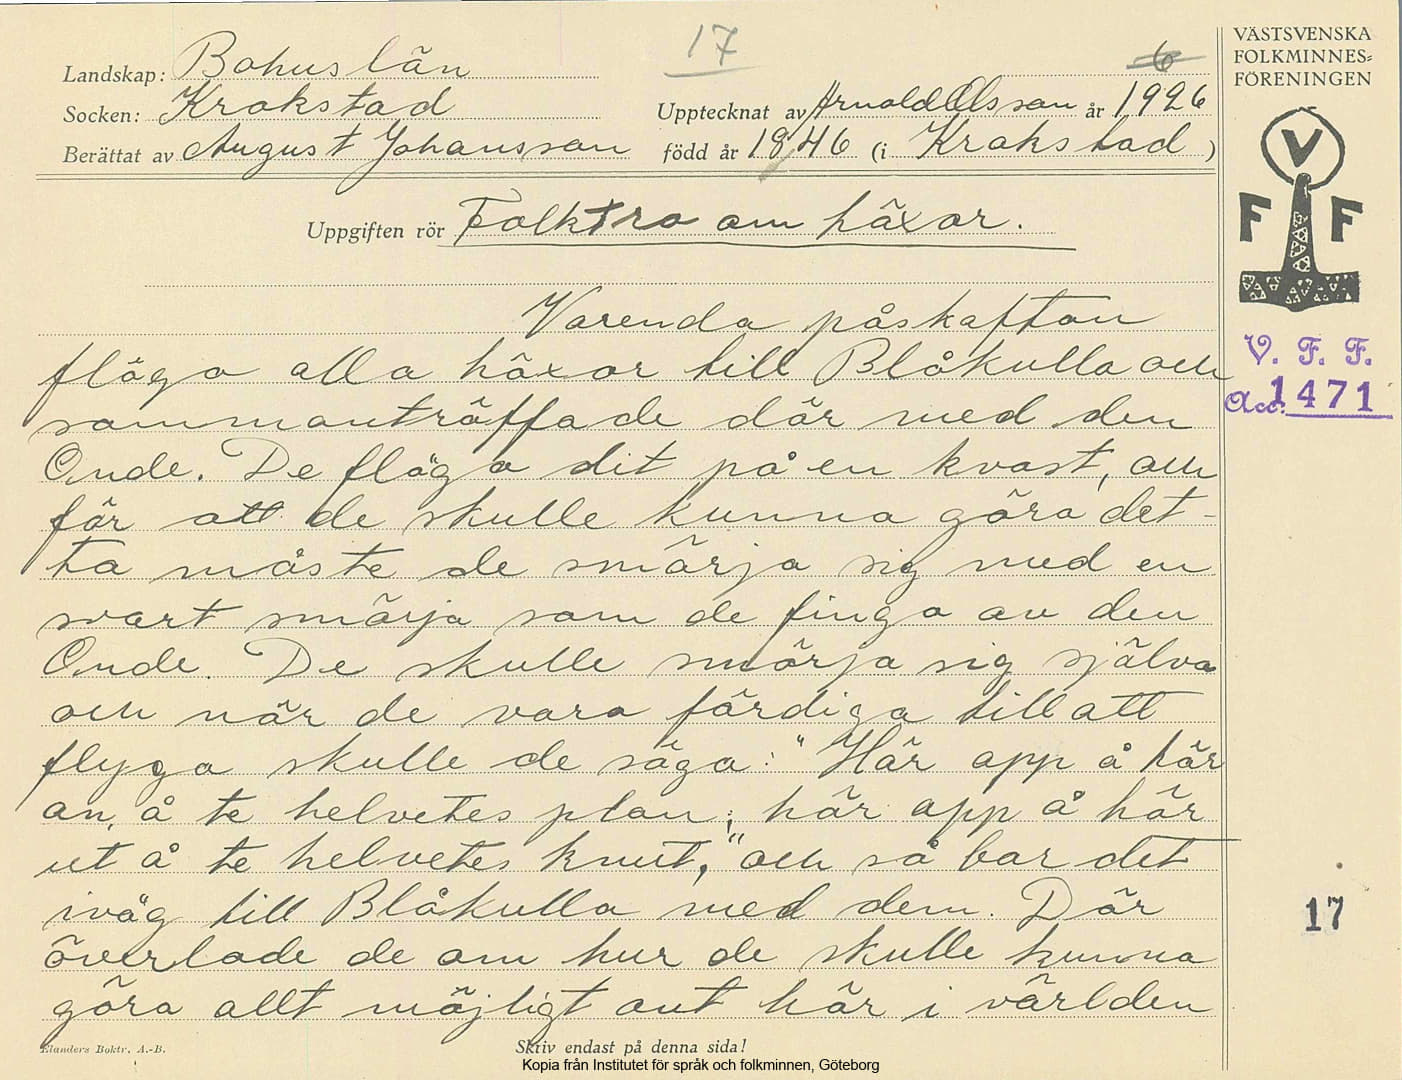 17
6
Landskap: Bohuslän
Socken: Krokstad
Upptecknat av Arnold Olsson år 1926
Berättat av August Johansson född år 1846 (i Krokstad)
Uppgiften rör Folktro om häxor.
Varenda påskafton
flögo alla häxor till Blåkulla och
sammanträffade där med den
Onde. De flögo dit på en kvast, och
för att de skulle kunna göra det-
ta måste de smörja sig med en
svart smörja som de fingo av den
Onde. De skulle smörja sig själva
och när de voro färdiga till att
flyga skulle de säga: "Här opp å här
an, å te helvetes plan; här opp å här
ut å te helvetes knut," och så bar det
iväg till Blåkulla med dem. Där
överlade de om hur de skulle kunna
göra allt möjligt ont här i världen
Elanders Boktr. A.-B.
Skriv endast på denna sida!
VÄSTSVENSKA
FOLKMINNES=
FÖRENINGEN
V
F F
V. F. F.
Acc. 1471
17
Kopia från Institutet för språk och folkminnen, Göteborg